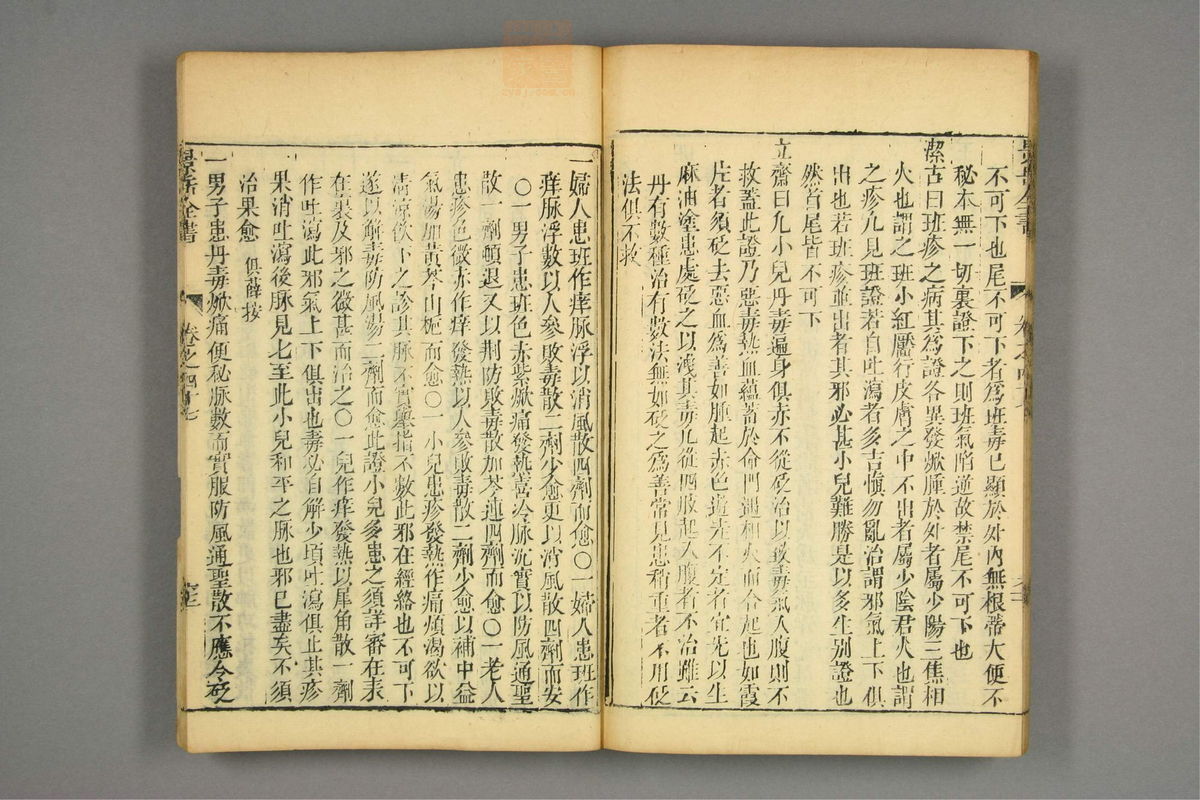 不可下也尾不可下者爲班毒已顯於外內無根蒂大便不
秘本無一切裏證下之則班氣陷逆故禁尾不可下也
潔古曰班疹之病其爲證各異發焮腫於外者屬少陽三焦相
火也謂之班小紅靨行皮膚之中不出者屬少陰君火也謂
之疹凡見班證若自吐瀉者多吉慎勿亂治謂邪氣上下俱
出也若班疹並出者其邪必甚小兒難勝是以多生別證也
然首尾皆不可下
立齋曰凡小兒丹毒遍身俱赤不從砭治以致毒氣入腹則不
救蓋此證乃惡毒熱血蘊蓄於命門遇相火而合起也如霞
片者須砭去惡血爲善如腫起赤色遊走不定者宜先以生
麻油塗患處砭之以洩其毒凡從四肢起入腹者不治雖云
丹有數種治有數法無如砭之爲善常見患稍重者不用砭
法俱不救
一婦人患班作痒脉浮以消風散四劑而愈〇一婦人患班作
痒脉浮數以人參敗毒散二劑少愈更以消風散四劑而安
〇一男子患班色赤紫焮痛發熱喜冷脉沉實以防風通聖
散一劑頓退又以荆防敗毒散加芩連四劑而愈〇一老人
患疹色微赤作痒發熱以人參敗毒散二劑少愈以補中益
氣湯加黃芩山梔而愈〇一小兒患疹發熱作痛煩渴欲以
清涼飲下之診其脉不實舉指不數此邪在經絡也不可下
遂以解毒防風湯二劑而愈此證小兒多患之須詳審在表
在裏及邪之微甚而治之〇一兒作痒發熱以犀角散一劑
作吐瀉此邪氣上下俱出也毒必自解少頃吐瀉俱止其疹
果消吐瀉後脉見七至此小兒和平之脉也邪已盡矣不須
治果愈 俱薛按
一男子患丹毒焮痛便秘脉數而實服防風通聖散不應令砭
景岳全書
卷之四十七